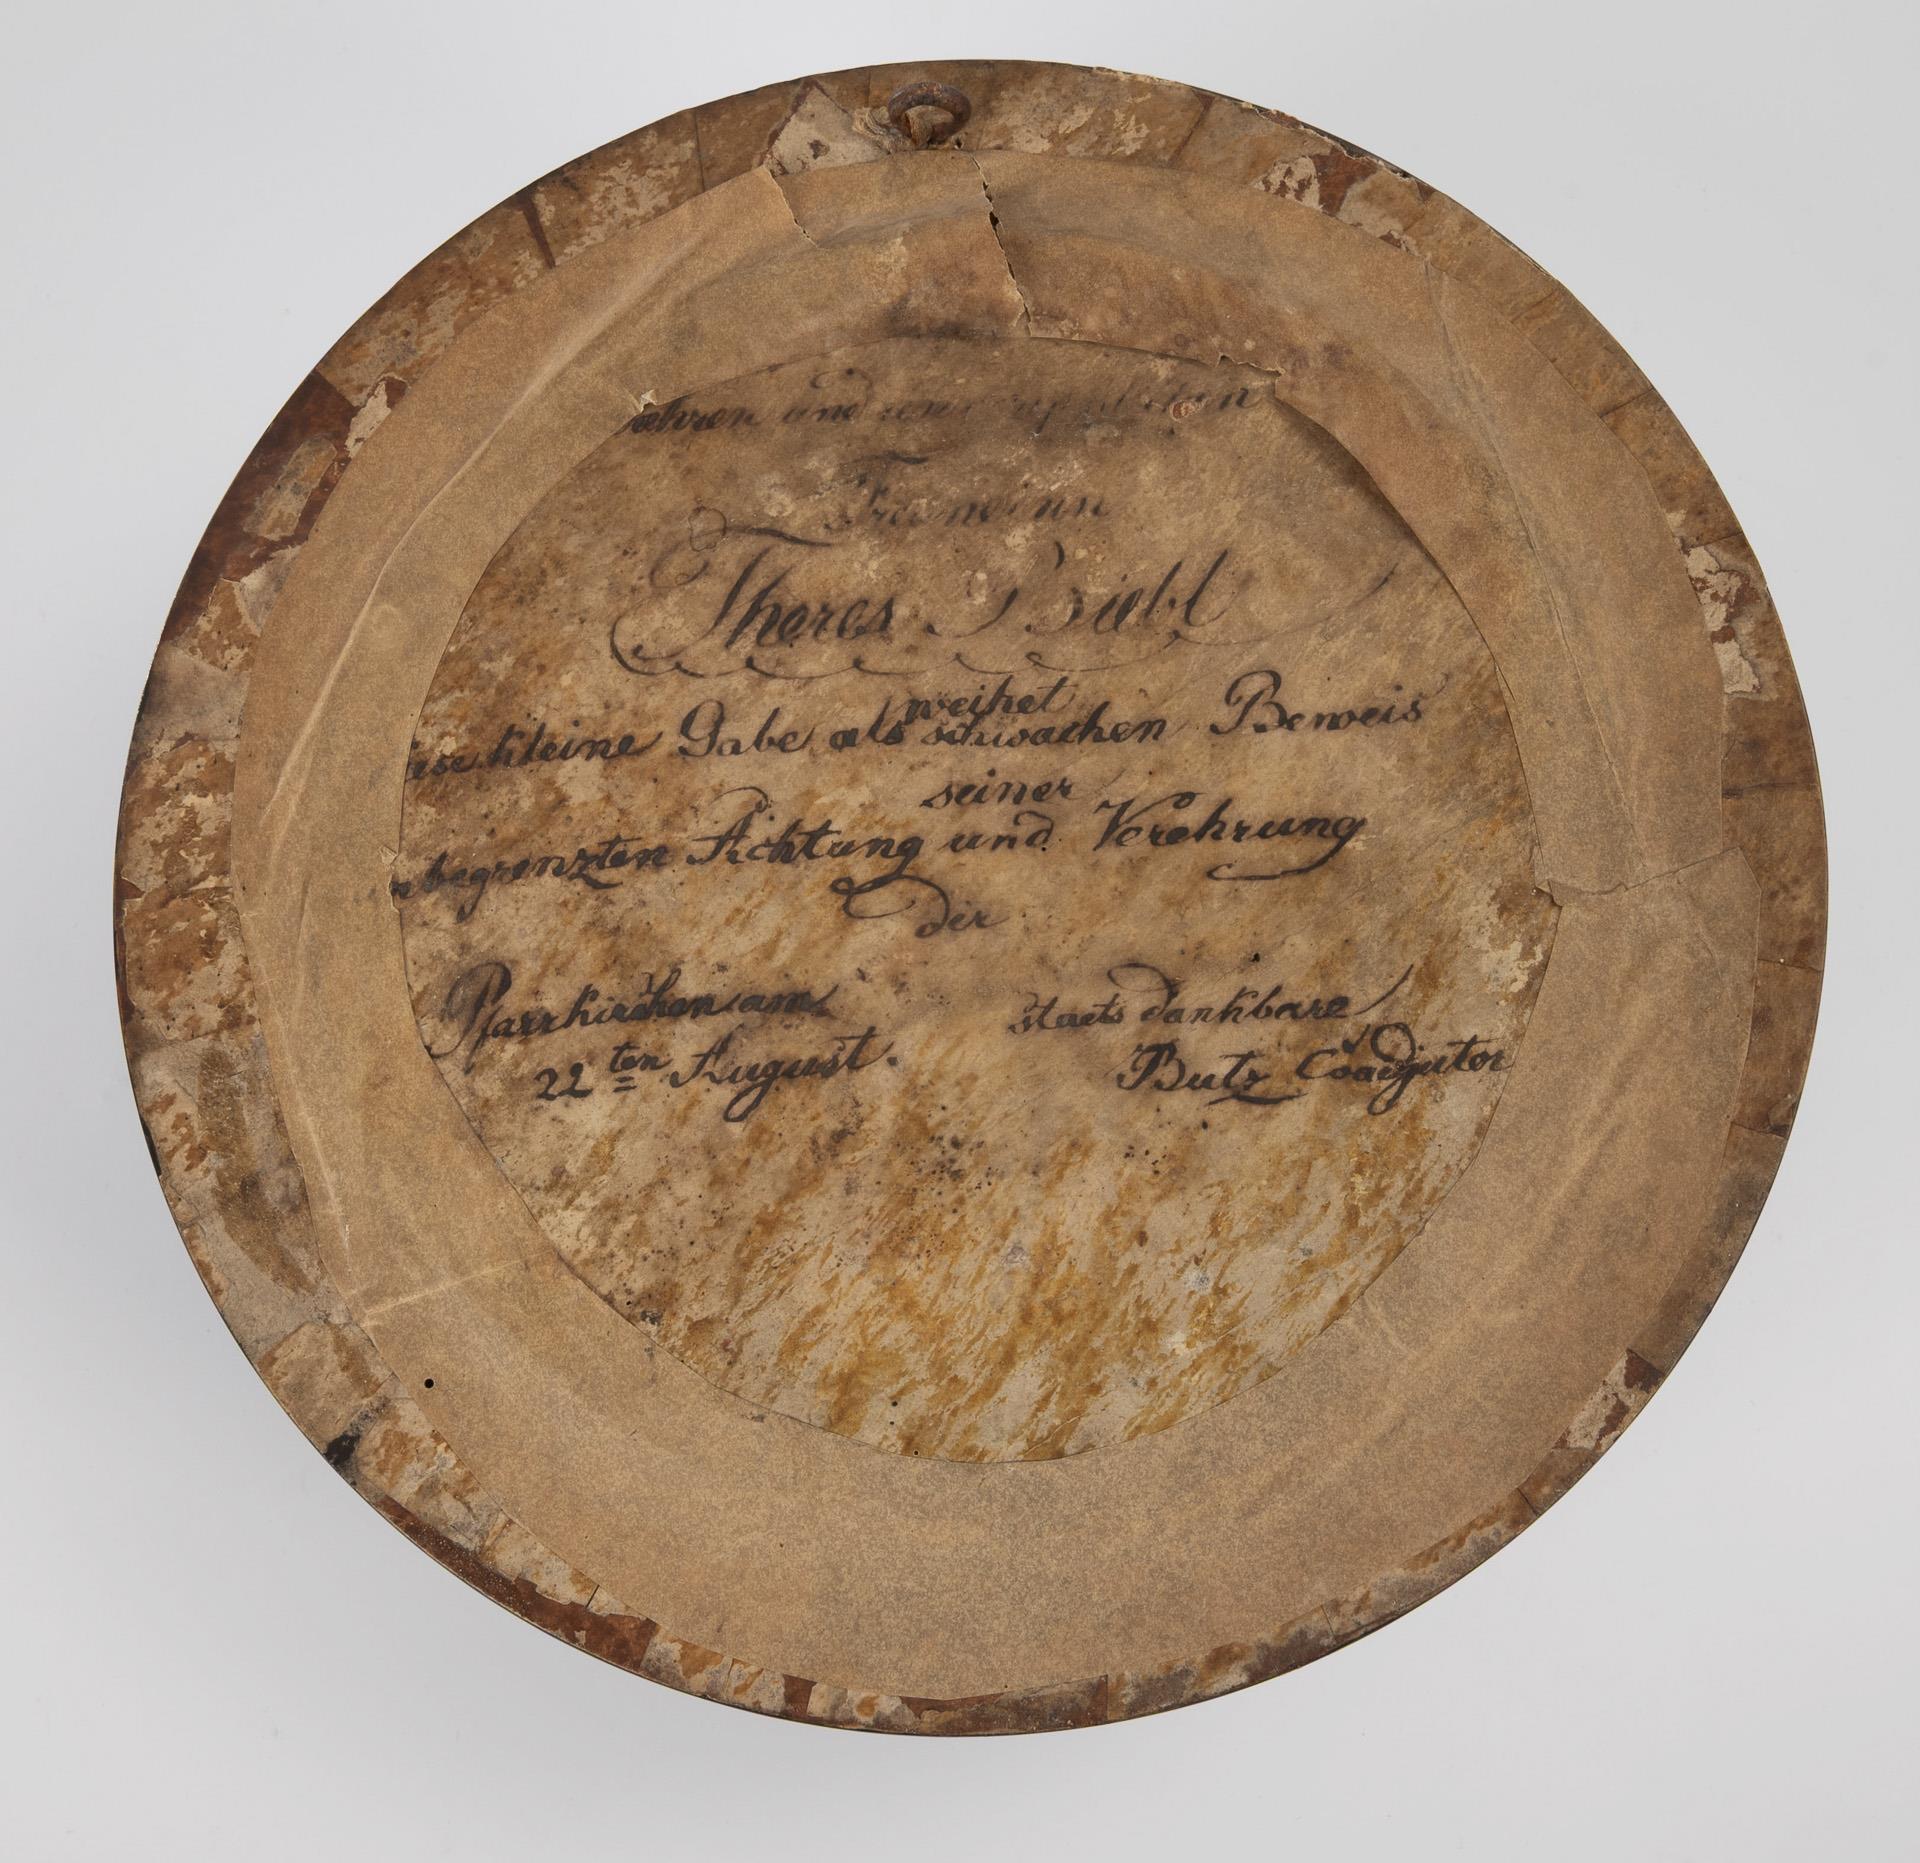 ahren und
Freundinn
Theres Biebl
weihet
iese kleine Gabe als schwachen Beweis
seiner
nbegrenzten Achtung und Verehrung
der
Pfarrkirchen am
22 ten August.
staets dankbare
Butz Coadjutor